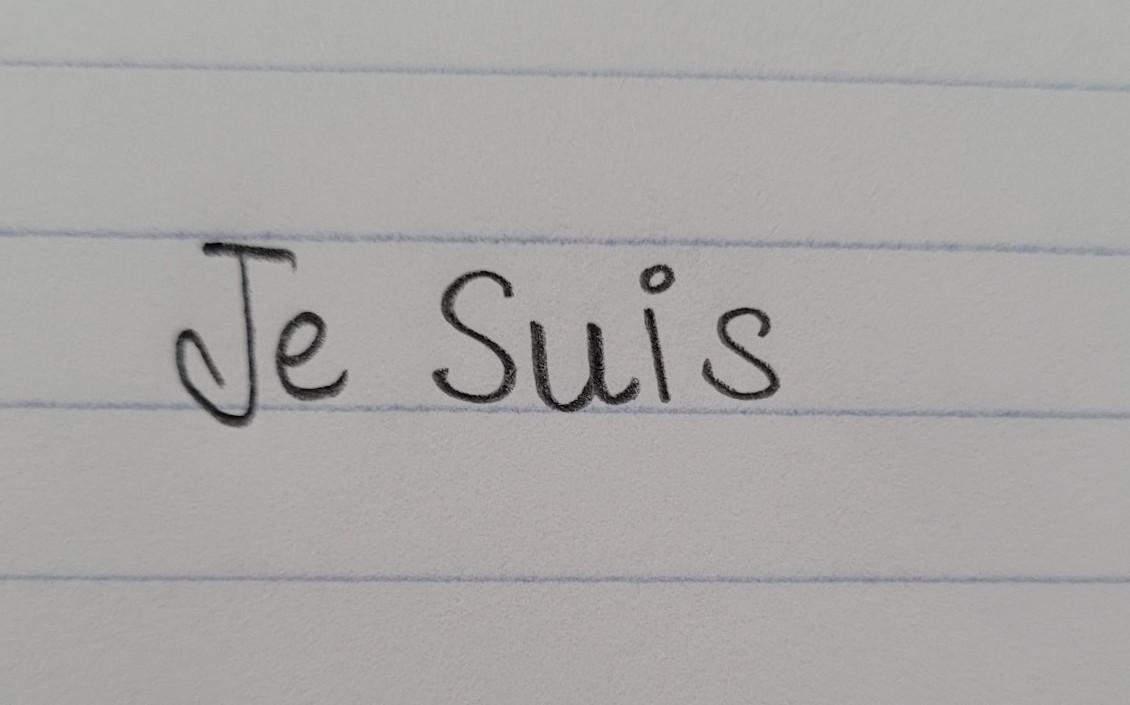 Je Suis